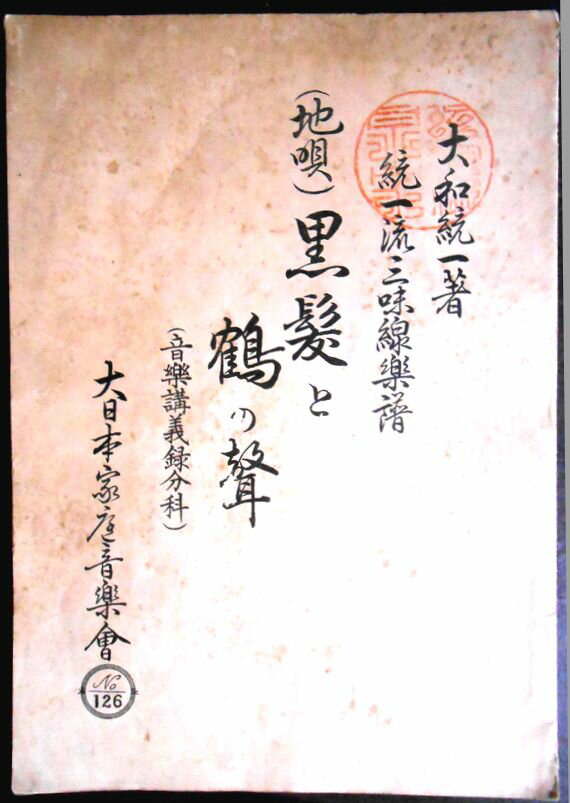 大和統一著
統一流三味線樂譜
(地唄)黒髮と
鶴の聲
(音樂講義録分科)
大日本家庭音樂會
No
126